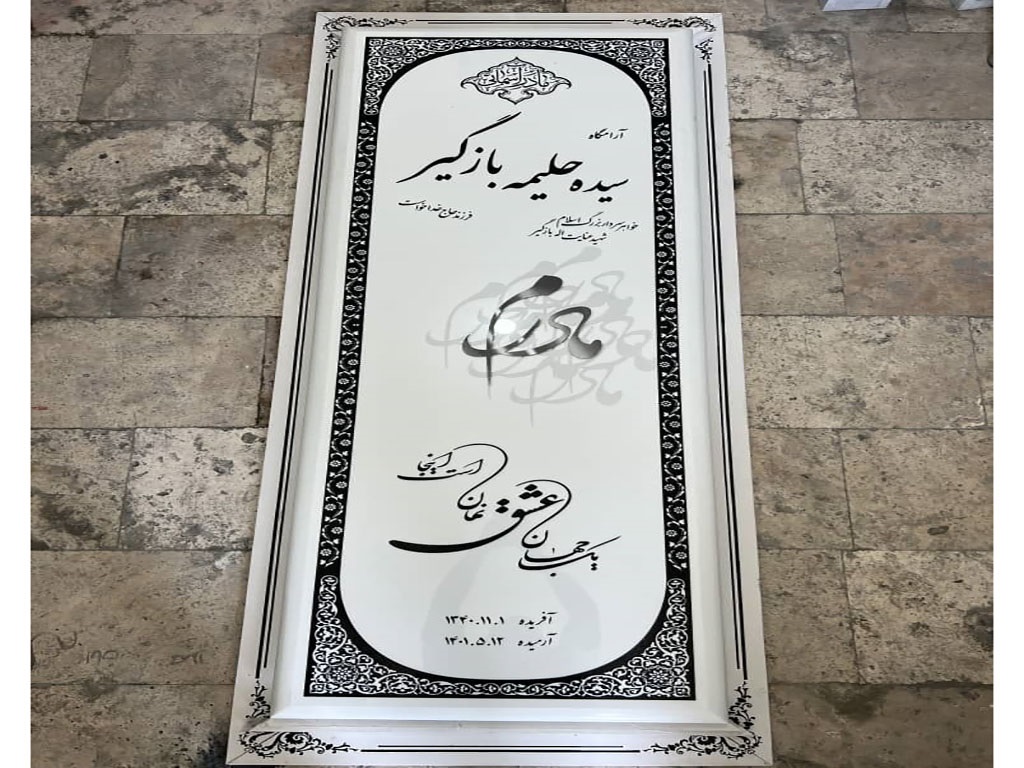 مادر آسمانی
آرامگاه
سیده حلیمه بازگیر
خواهر سردار بزرگ اسلام
شهید عنایت اله بازگیر
فرزند حاج خداخواست
مادرم
یک جهان عشق نهان است اینجا
آفریده ۱۳۴۰.۱۱.۱
آرمیده ۱۴۰۱.۵.۱۲